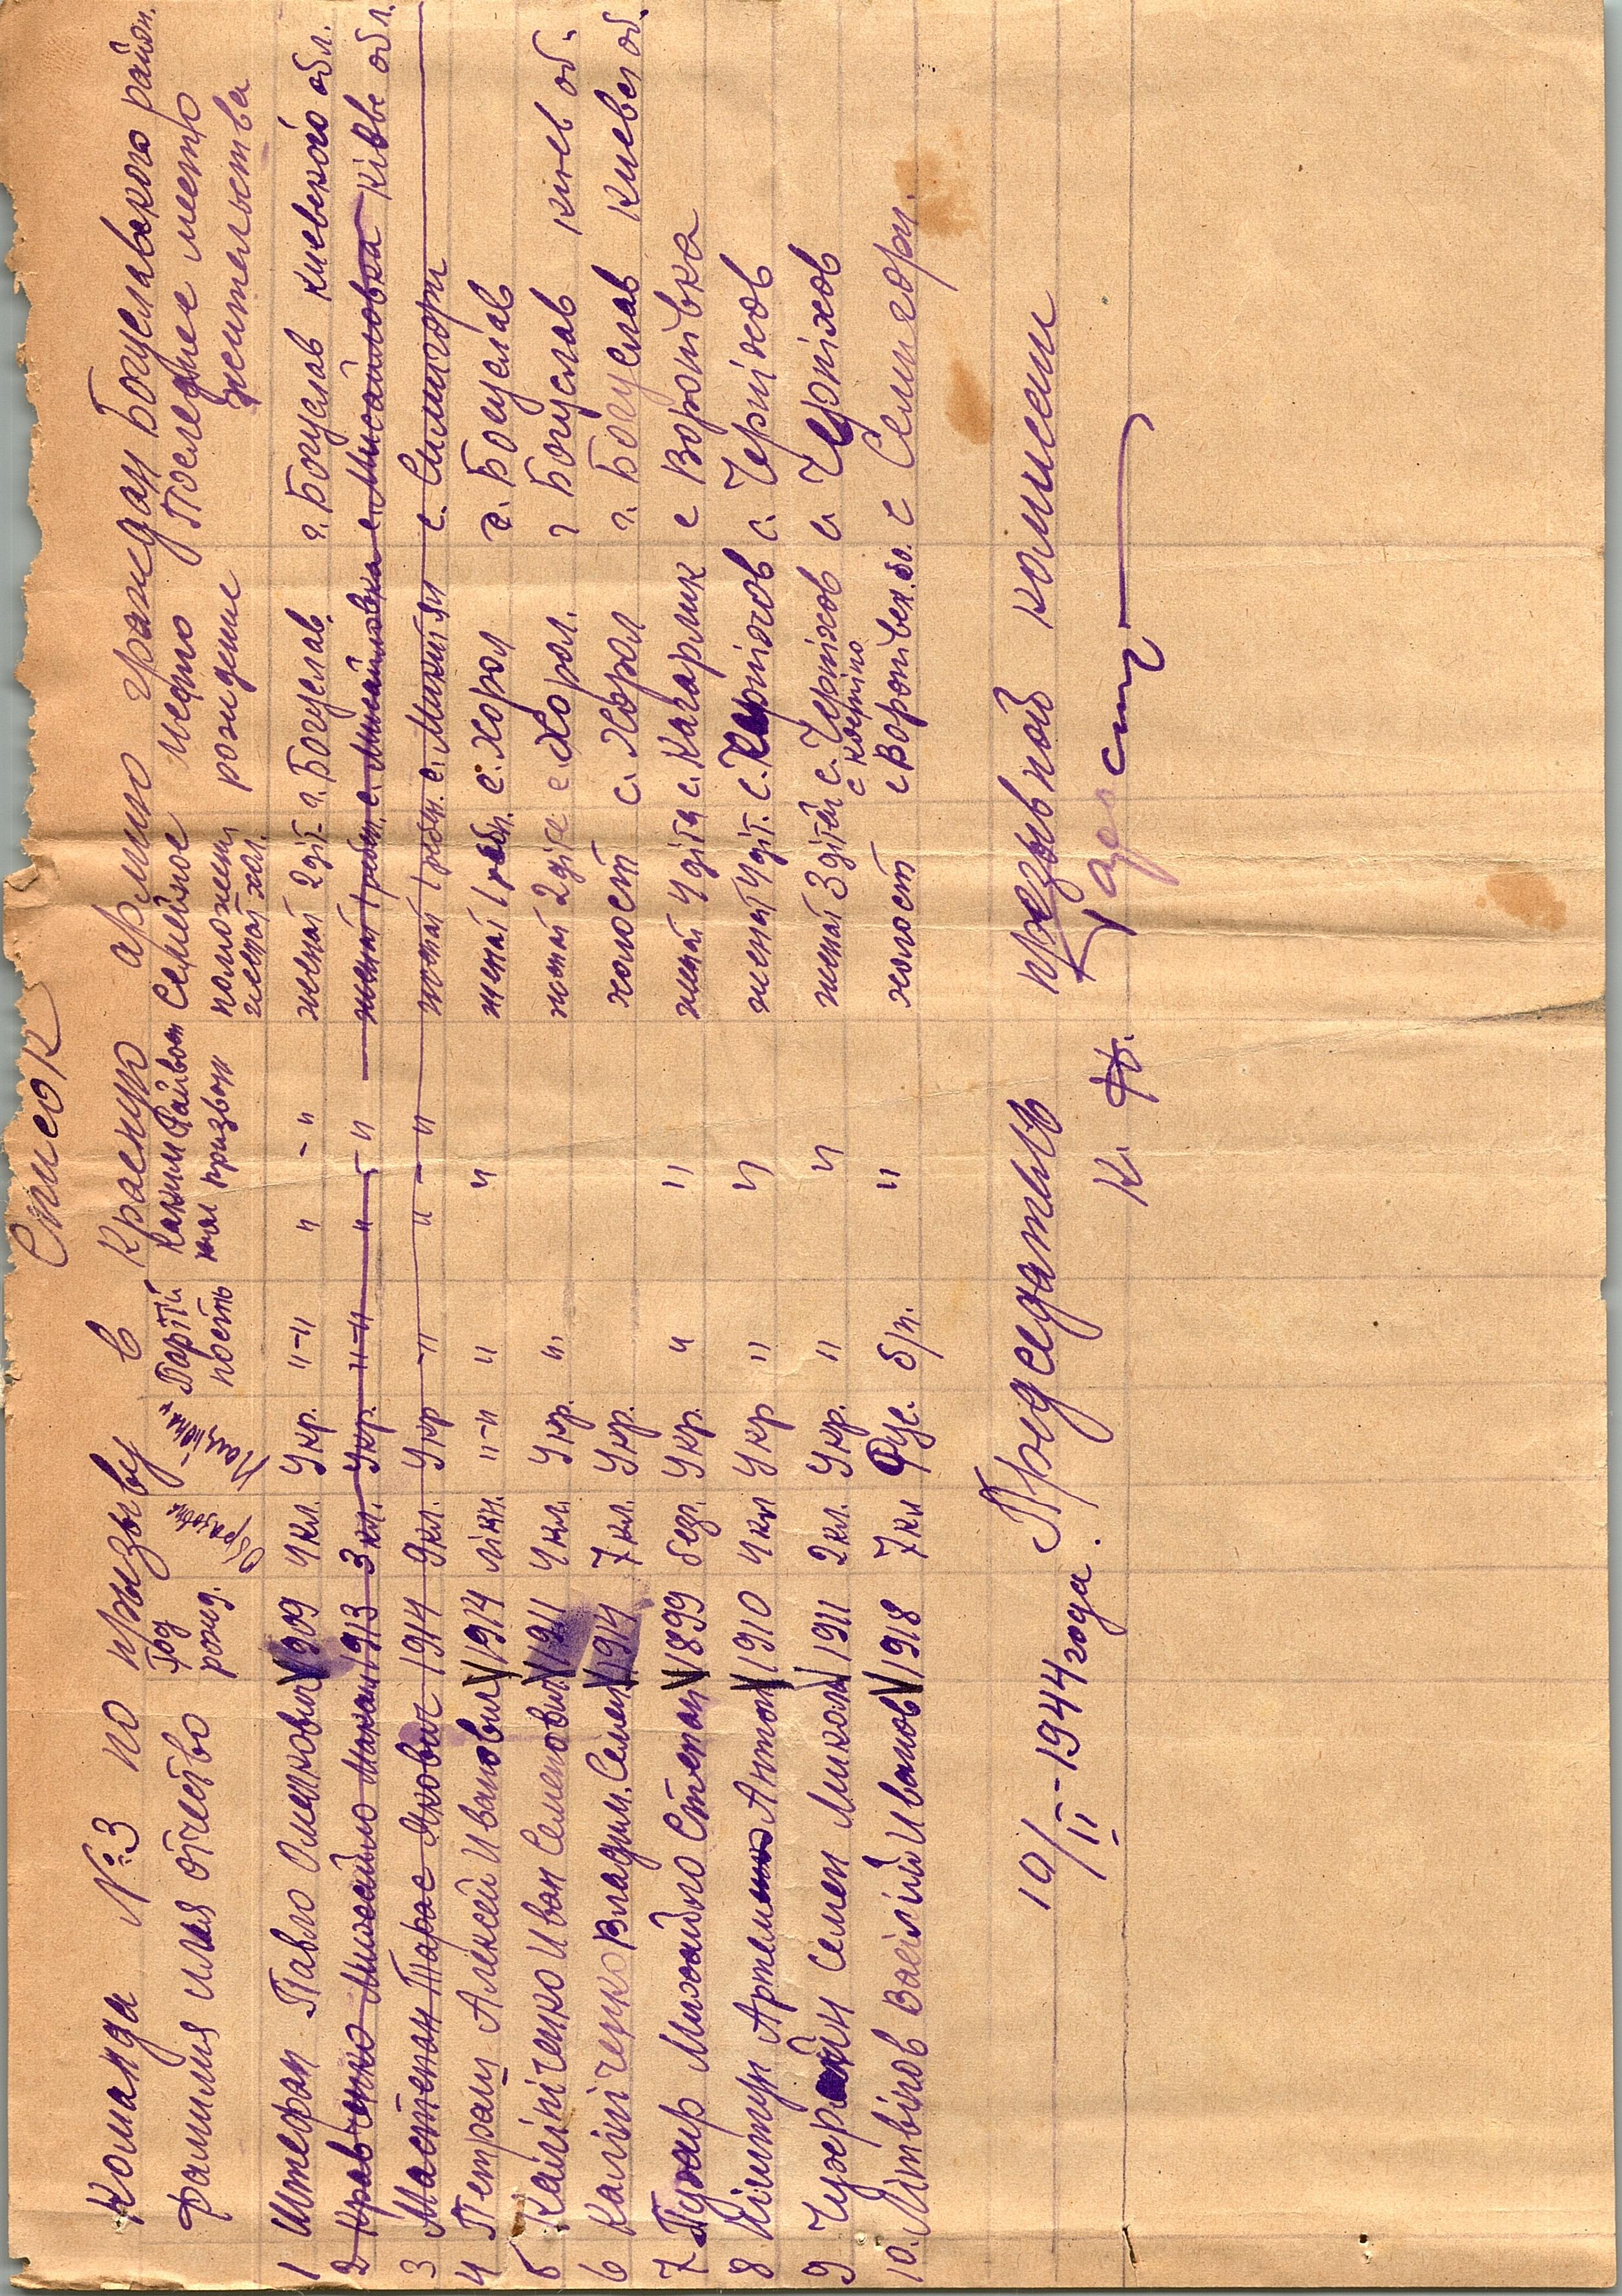 Список
Команда №3 по призыву в Красную армию граждан Богуславского район.
фамилия имя отчество Год рожд. Образов. Партийность Каким Райвоенкомат призван Семейное положен женат хол. место рождение Последнее место жительства
1 Штефан Павло 1909 4кл. Укр. "-" " -" женат 2 діт. г. Богуслав г. Богуслав Киевской обл.
2 Кравченко Михайло 1913 3 кл. Укр. "-" " - " женат 1 ребен. с. Мисайловка с. Мисайловка Київс обл.
3 Мастепан Тарас Якович 1914 9кл. Укр -" " - " женат 1 ребен. с. с. Симигори
4 Петраш Алексей Иванович 1914 "-" " " женат 1 ребн. с. Хорол г. Богуслав
5 Калініченко Иван Семенович 1911 4кл. Укр. " женат 2 діте с. Хорол. г Богуслав Киев об.
6 Калініченко Владим. Семен 1914 7кл. Укр. холост с. Хорол г. Богуслав Киев об.
7 Михайло Степан 1899 безг. Укр. " " женат 4 діте с. Кагарлик с Воронівка
8 Артем Антон 1910 4кл Укр " " женат 4 діт. с. Черніхов с. Черніхов
9 Семен Микол 1911 2кл. Укр. " " женат 3 дітей с. Черніхов с. Черніхов
10. Літвінов Васілий Иванов 1918 7кл Рус. б/п. " холост с Воронівск. об. с Семигори.
10/II-1944 года. Председатель призывной комисии
К. Ф.